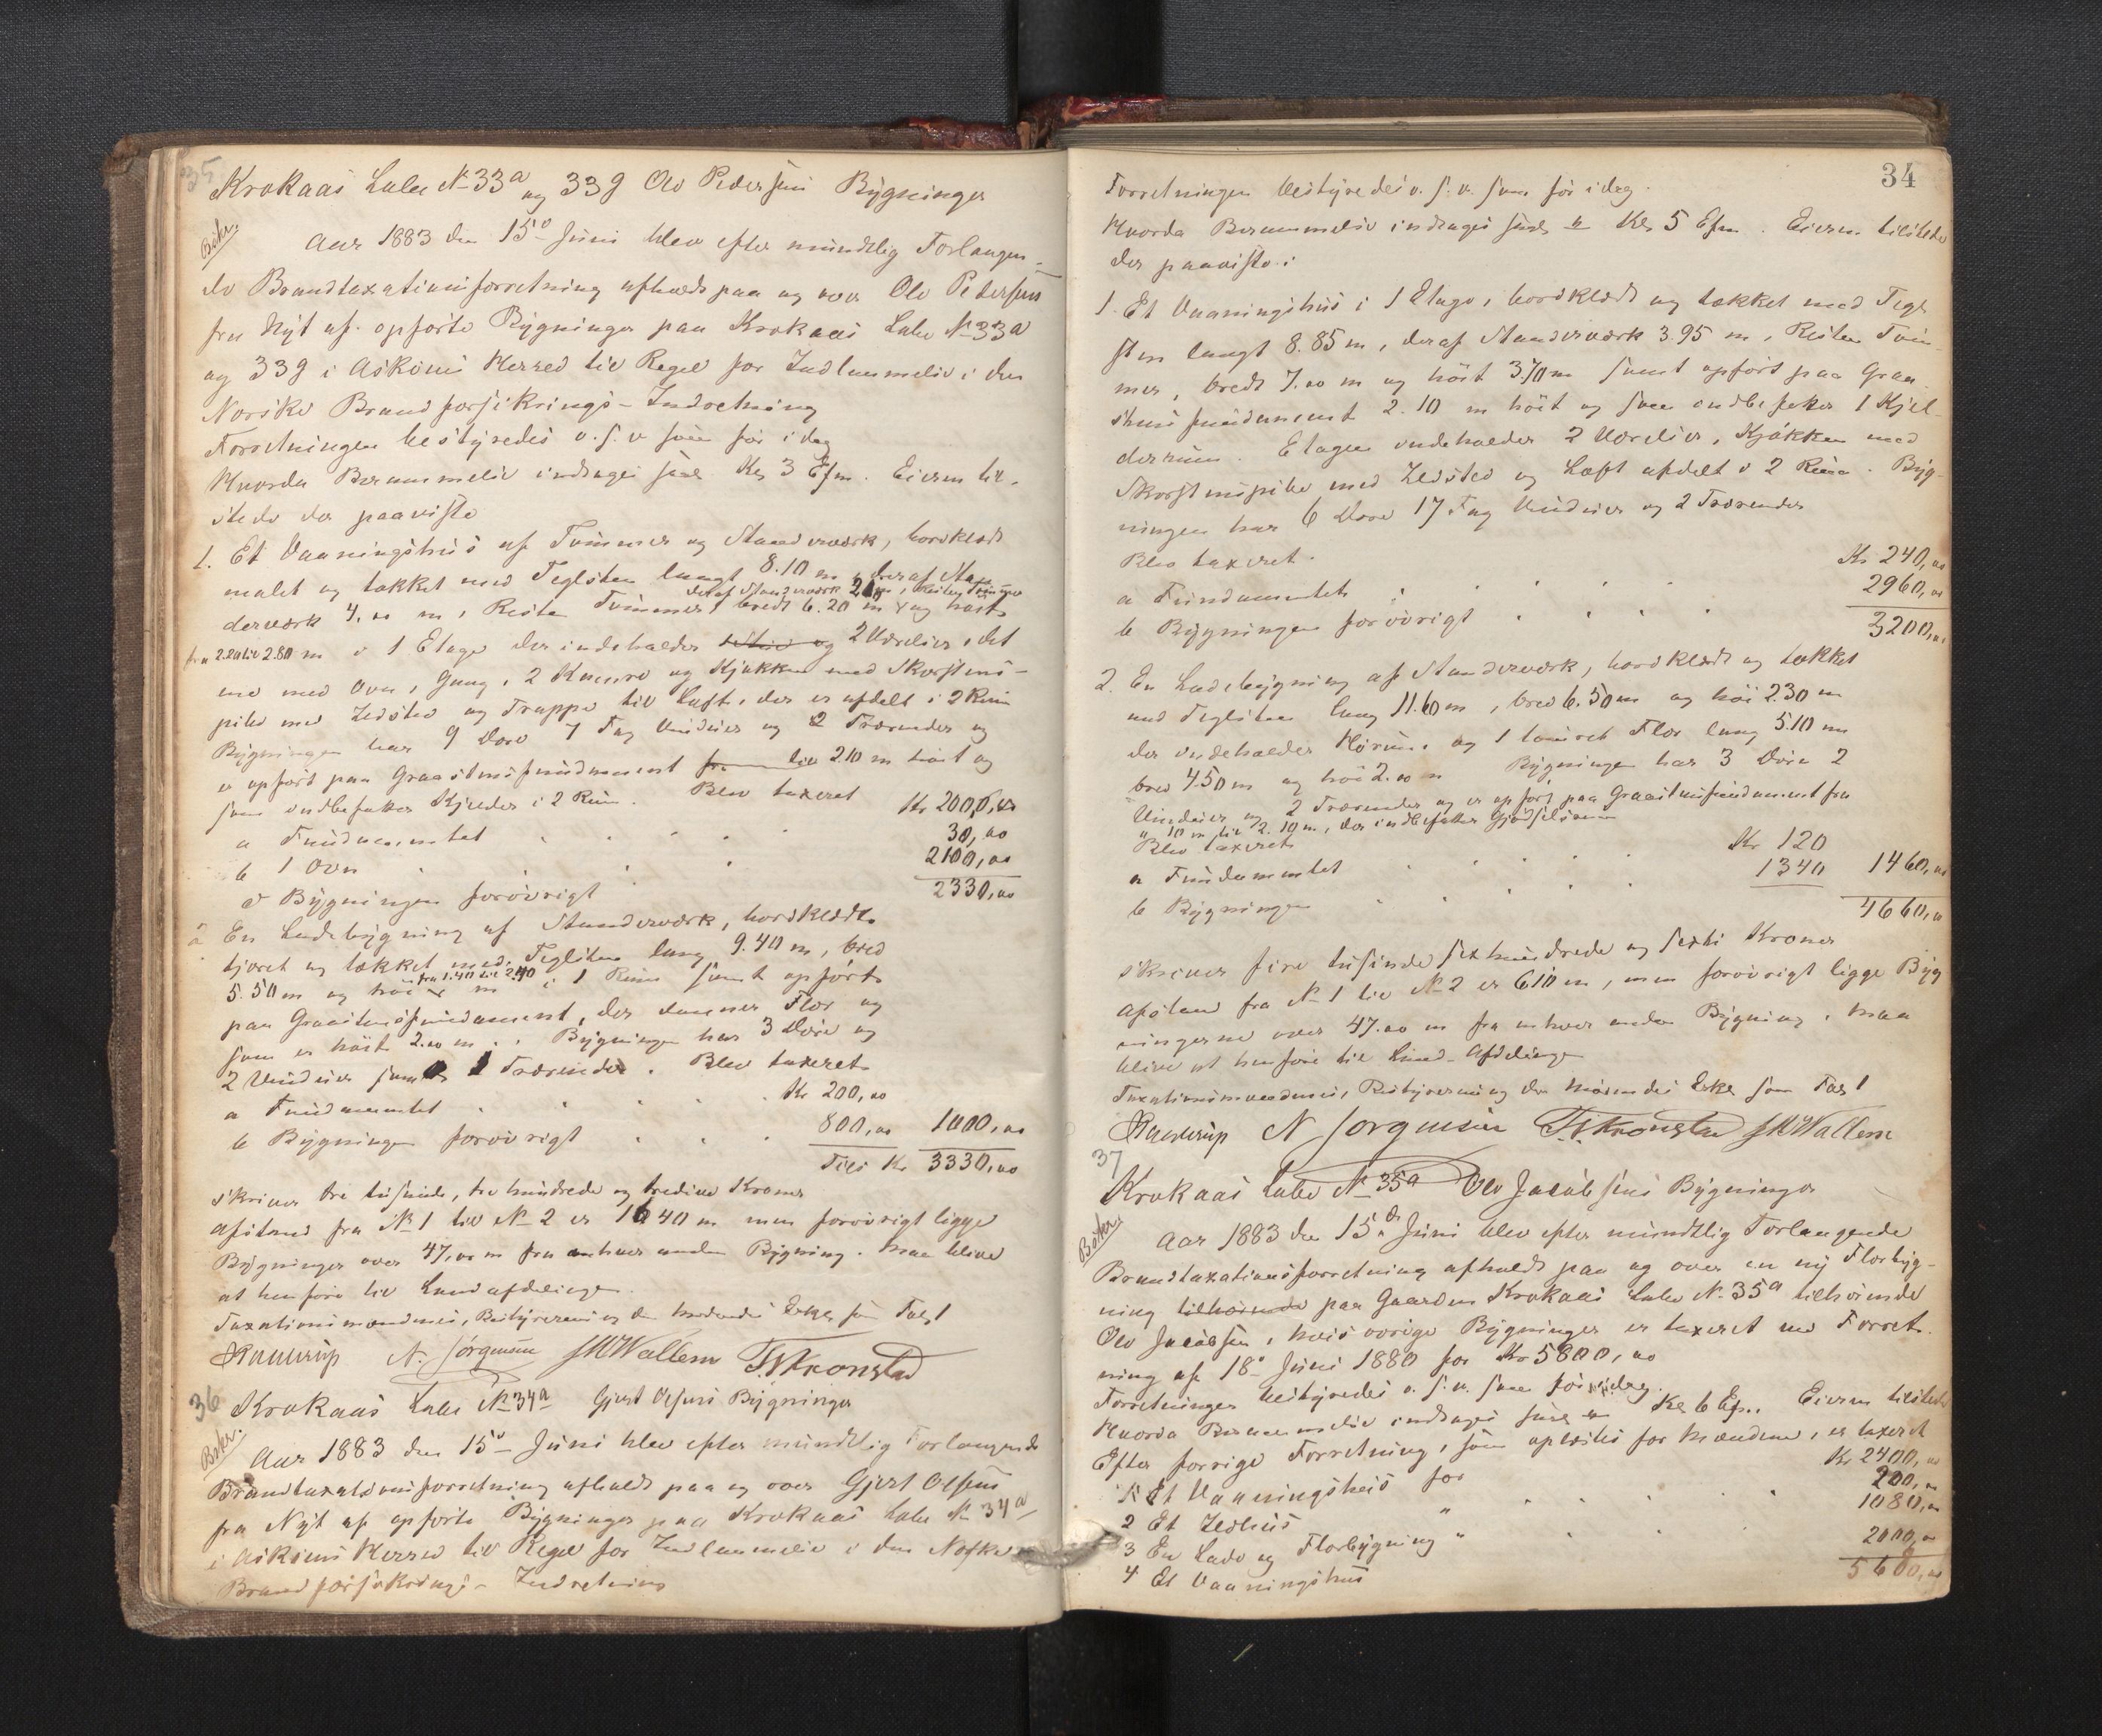 35
Krokaas Lube № 33a og 33g Ole Pedersens Bygninger
Bekr.
Aar 1883 den 15de Juni blev efter mundtlig Forlangen-
de Brandtaxationsforretning afholdt paa og over Ole Pedersens
fra Nyt af opførte Bygninger paa Krokaas Lube № 33a
og 33g i Askøens Herred til Regel for Indlemmelse i den
Norske Brandforsikrings-Indretning
Forretningen bestyredes o. s. v. som før idag
Hvorda Berammelsen indtages sine Kl 3 Efm. Eieren til-
stede der paaviste
1. Et Vaaningshus af Tømmer og Standerværk, bordklædt
malet og tækket med Teglsten langt 8.10 m, deraf Stan
deraf Standerværk 2.10 m, Resten Tømmer
derværk 4.00 m, Resten Tømmer, bredt 6.20 m og høit
fra 2.20 til 2.80 m i 1 Etage der indeholder og 2 Værelser, det
ene med Ovn, Gang, 2 Kamre og Kjøkken med Skorstens-
pibe med Ildsted og Trappe til Loft, der er afdelt i 2 Rum
Bygningen har 9 Døre 7 Fag Vinduer og 2 Trærender og
er opført paa Graastensfundament fra til 2.10 m høit og
som indbefatter Kjelder i 2 Rum. Blev taxeret
a Fundamentet Kr 200,00
b 1 Ovn 30,00
c Bygningen forøvrigt 2100,00
2330,00
2 En Ladebygning af Standerværk, bordklædt
tjæret og tækket med Teglsten lang 9.40 m, bred
5.50 m og høi fra 1.40 til 2.40 m i 1 Rum samt opført
paa Graastensfundament, der danner Flor og
som er høit 2.00 m. Bygningen har 3 Døre og
2 Vinduer samt 1 Trærender. Blev taxeret
a Fundamentet Kr 200,00
b Bygningen forøvrigt 800,00 1000,00
Tils Kr 3330,00
skriver tre tusinde, tre hundrede og tredive Kroner
Afstand fra № 1 til № 2 er 16.40 m men forøvrigt ligge
Bygninger over 47,00 m fra enhver anden Bygning. Maa blive
at henføre til Landafdelingen.
Taxationsmændenes, Bestyrerens og den mødendes Erkl. som Fol 1
N. Jørgensen SMWallem T. Kronstad
36 Krokaas Lube № 34a Gjert Olsens Bygninger
Bekr.
Aar 1883 den 15de Juni blev efter mundtlig Forlangende
Brandtaxationsforretning afholdt paa og over Gjert Olsens
fra Nyt af opførte Bygninger paa Krokaas Lube № 34a
i Askøens Herred til Regel for Indlemmelse i den Norske
Brandforsikrings-Indretning
34
Forretningen bestyredes o. s. v. som før idag.
Hvorda Berammelsen indtages sine Kl 5 Efm. Eieren tilstede
der paaviste:
1. Et Vaaningshus i 1 Etage, bordklædt og tækket med Tegl
sten langt 8.85 m, deraf Standerværk 3.95 m, Resten Tøm-
mer, bredt 7.00 m og høit 3.70 m samt opført paa Graa
stensfundament 2.10 m høit og som indbefatter 1 Kjel-
derrum. Etagen indeholder 2 Værelser, Kjøkken med
Skorstenspibe med Ildsted og Loft afdelt i 2 Rum. Byg-
ningen har 6 Døre 17 Fag Vinduer og 2 Trærender
Blev taxeret.
a Fundamentet Kr 240,00
b Bygningen forøvrigt 2960,00
3200,00
2. En Ladebygning af Standerværk, bordklædt og tækket
med Teglsten lang 11.60 m, bred 6.50 m og høi 2.30 m
der indeholder Hørum og 1 tømret Flor lang 5.10 m
bred 4.50 m og høi 2.00 m Bygningen har 3 Døre 2
Vinduer og 2 Trærender og er opført paa Graastensfundament fra
" 10 m til 2.10 m, der indbefatter Gjødselsrum
Blev taxeret
a Fundamentet Kr 120
b Bygningen 1340 1460,00
4660,00
skriver fire tusinde sexhundrede og sexti Kroner
Afstand fra № 1 til № 2 er 6.10 m, men forøvrigt ligge Byg
ningerne over 47.00 m fra enhver anden Bygning. Maa
blive at henføre til Land-Afdelingen
Taxationsmændenes, Bestyrerens og den mødendes Erkl. som Fol 1
N Jørgensen T. Kronstad SMWallem
37
Krokaas Lube № 35a Ole Jacobsens Bygninger
Bekr.
Aar 1883 den 15de Juni blev efter mundtlig Forlangende
Brandtaxationsforretning afholdt paa og over en ny Florbyg-
ning tilhørende paa Gaarden Krokaas Lube № 35a tilhørende
Ole Jacobsen, hvis øvrige Bygninger er taxeret ved Forret-
ning af 18de Juni 1880 for Kr 5800,00
Forretningen bestyredes o. s. v. som før idag.
Hvorda Berammelsen indtages sine Kl 6 Ef.. Eieren tilstede
Efter forrige Forretning, som oplæstes for Mændene, er taxeret
1 Et Vaaningshus for Kr 2400,00
2 Et Ildhus " 200,00
3 En Lade og Florbygning " 1080,00
4 Et Vaaningshus 2000,00
5680,00